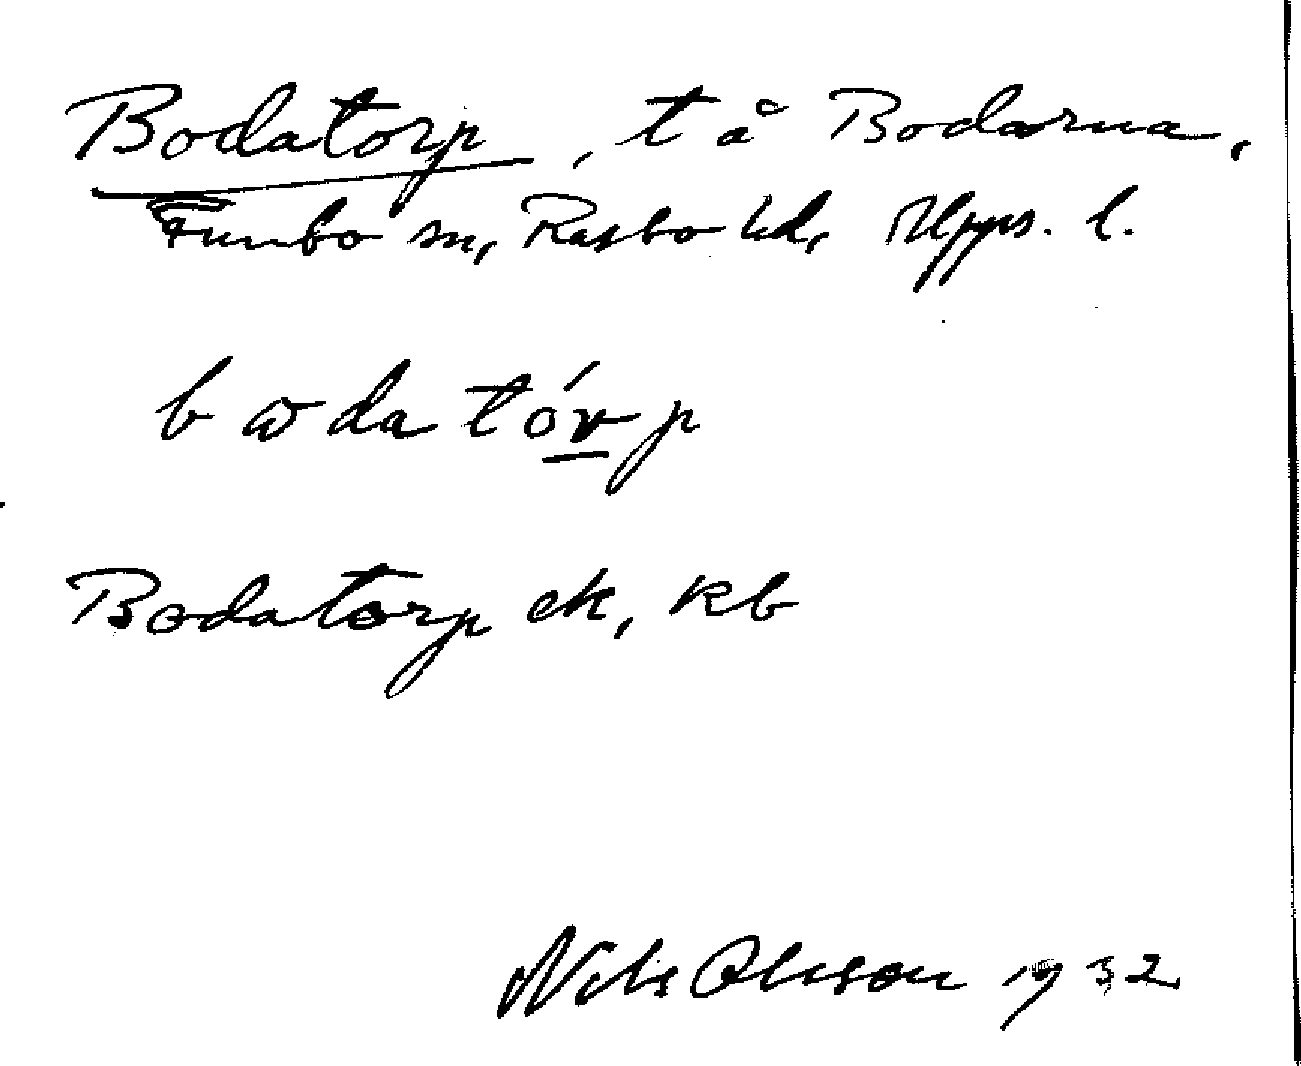 Bodatorp, t å Bodarna,
Funbo sn, Rasbo hd, Upps. l.
b ω da tórp
Bodatorp ek, kb
Nils Olsson 1932